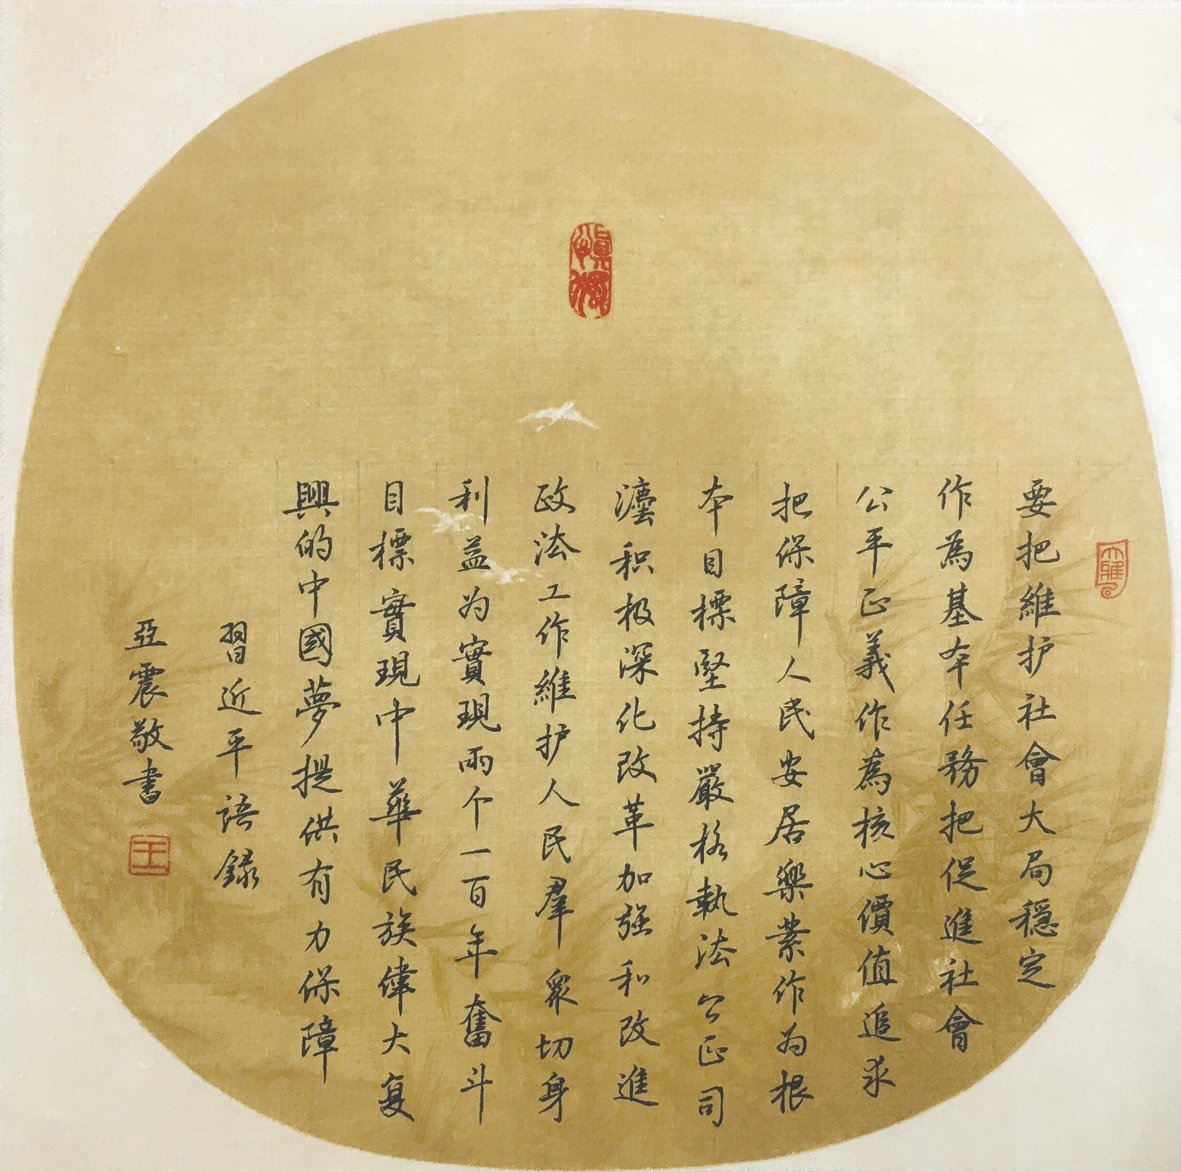 要把維护社會大局穩定
作為基本任務把促進社會
公平正義作為核心價值追求
把保障人民安居樂業作为根
本目標堅持嚴格執法公正司
灋积极深化改革加强和改進
政法工作維护人民羣衆切身
利益为實現兩个一百年奮斗
目標實現中華民族偉大复
興的中國夢提供有力保障
習近平語錄
亞震敬書
王